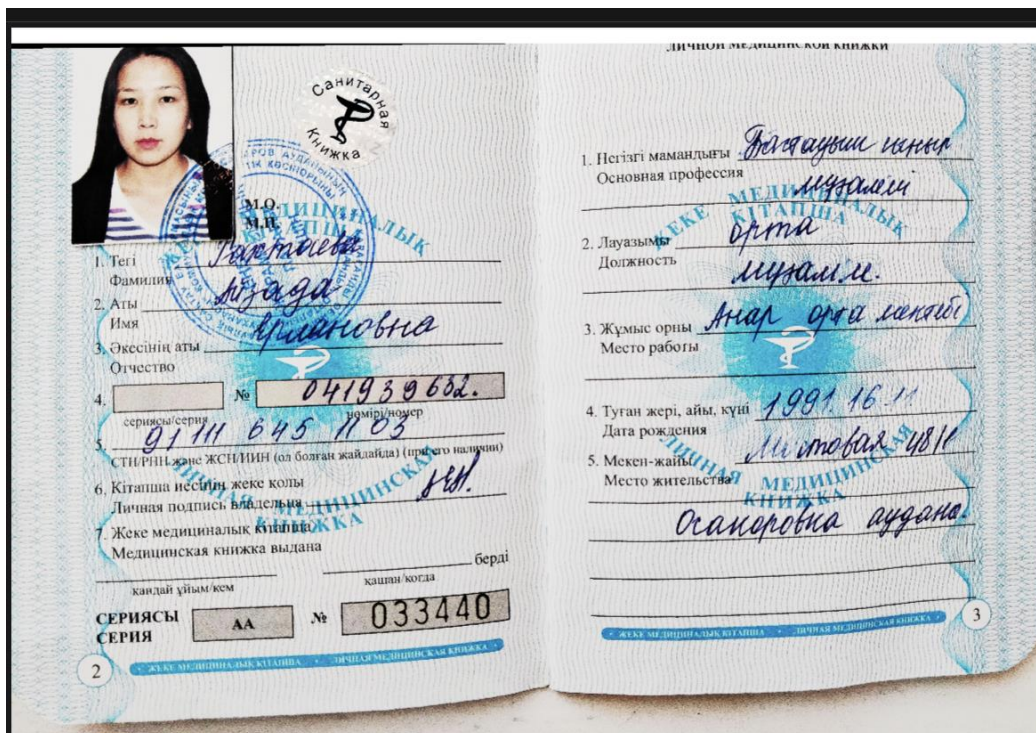 Санитарная
Книжка
М.О.
М.П.
1. Тегі
Фамилия
2. Аты Айзада
Имя
3. Әкесінің аты Урмановна
Отчество
4. № 041939632.
сериясы/серия нөмірі/номер
5. 91111 645 1103
СТН/РНН және ЖСН/ИИН (ол болған жағдайда) (при его наличии)
6. Кітапша иесінің жеке қолы
Личная подпись владельца
7. Жеке медициналық кітапша
Медицинская книжка выдана
берді
қандай ұйым/кем қашан/когда
СЕРИЯСЫ
СЕРИЯ АА № 033440
2 ЖЕКЕ МЕДИЦИНАЛЫҚ КІТАПША • ЛИЧНАЯ МЕДИЦИНСКАЯ КНИЖКА
ЛИЧНОЙ МЕДИЦИНСКОЙ КНИЖКИ
1. Негізгі мамандығы Бастауыш сынып
Основная профессия мұғалімі
2. Лауазымы орта
Должность мұғалім.
3. Жұмыс орны Анар орта мектебі
Место работы
4. Туған жері, айы, күні 1991.16.11
Дата рождения
5. Мекен-жайы Листовая 48/1
Место жительства
Осакаровка ауданы.
ЖЕКЕ МЕДИЦИНАЛЫҚ КІТАПША • ЛИЧНАЯ МЕДИЦИНСКАЯ КНИЖКА 3
ЖЕКЕ МЕДИЦИНАЛЫҚ
КІТАПША
ЛИЧНАЯ МЕДИЦИНСКАЯ
КНИЖКА